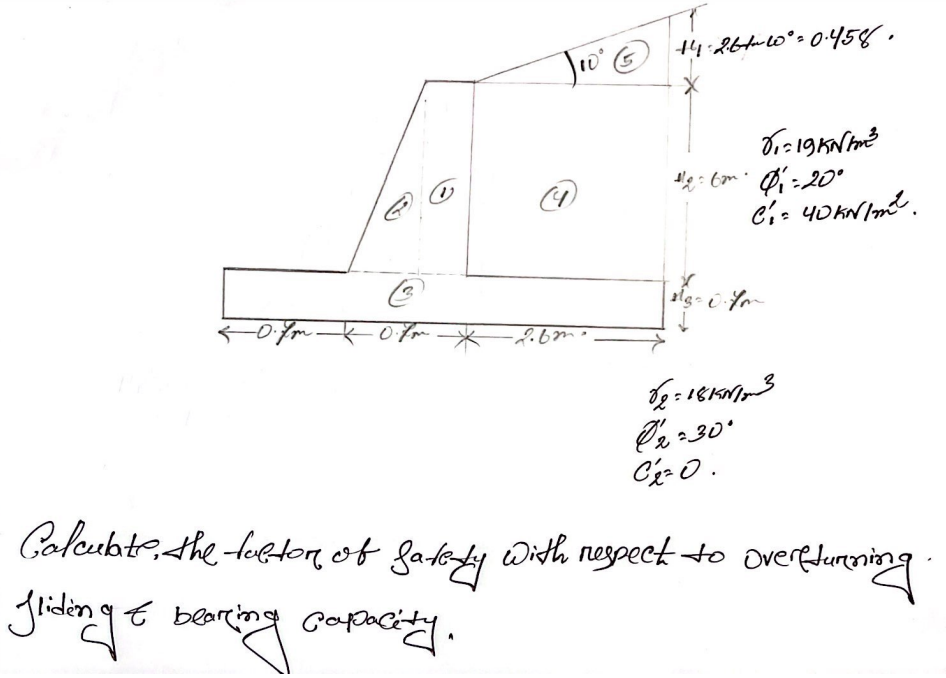 H1 = 2.6 tan 10° = 0.458.
10° ⑤
γ1 = 19 KN/m³
H2 = 6m. φ'1 = 20°
② ① ④
C'1 = 40 KN/m².
③
H3 = 0.7m
0.7m 0.7m 2.6m.
γ2 = 18 KN/m³
φ'2 = 30°
C'2 = 0.
Calculate, the factor of Safety with respect to overturning
Sliding & bearing capacity.